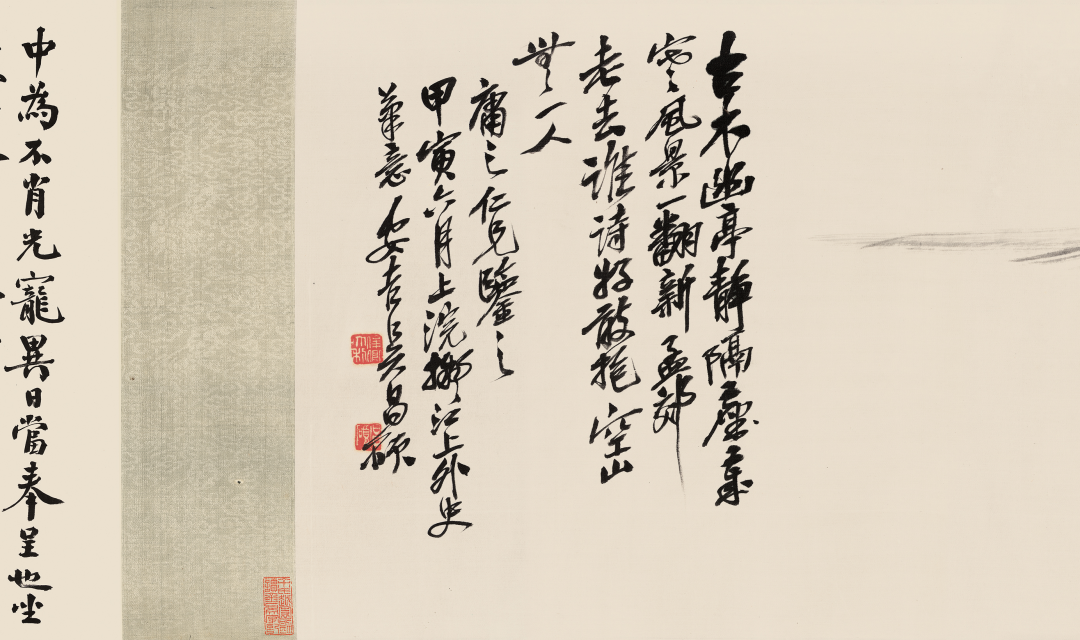 古木幽亭靜隔塵蕭
寥風景一翻新孟郊
老去誰詩好敢抱空山
無一人
庸之仁兄鑒之
甲寅六月上浣擬江上外史
筆意安吉吳昌碩
中為不肖光寵異日當奉呈也坐